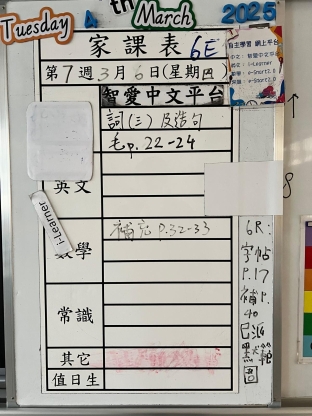 Tuesday
4th
March
2025
家課表 6E
第7週3月6日(星期四)
自主學習 網上平台
智愛中文平台
詞(三)及造句
毛p. 22-24
英文
i-Learner
數學
補充 P.32-33
常識
其它
值日生
6R:
字帖
P.17
補P.
40
已派
默範